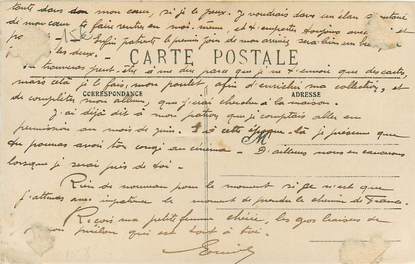 tout dans ton mon cœur, si je le peux. Je voudrais dans un élan
de mon cœur te faire rentrer en moi-même, et t'emporter toujours avec
patient le premier jour de mon arrivée sera bien
les deux.
CARTE POSTALE
tu trouveras peut-être à me dire parce que je ne t'envoie que des cartes,
mais cela je le fais, mon poulet afin d'enrichir ta collection, et
CORRESPONDANCE
ADRESSE
de compléter mon album, que j'irai chercher à la maison.
J'ai déjà dit à mon patron que je comptais aller en
permission au mois de juin. à cette époque-là je présume que
tu pourras avoir ton congé au cinéma. D'ailleurs nous en causerons
lorsque je serai près de toi.
Rien de nouveau pour le moment si ce n'est que
j'attends avec impatience le moment de prendre le chemin de France.
Reçois ma petite femme chérie, les gros baisers de
ton qui est tout à toi.